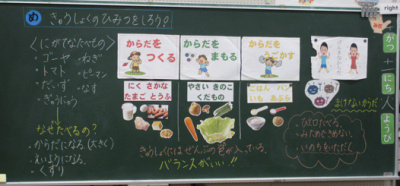 right
め きゅうしょくのひみつをしろう。
<にがてなたべもの>
・ゴーヤ ・ねぎ
・トマト ・ピーマン
・なす
・ぎゅうにゅう
なぜたべるの?
・からだになる(大きく)
・えいようになる
・くすり
からだを
つくる
からだを
まもる
からだを
うごかす
にく さかな
たまご とうふ
やさい きのこ
くだもの
ごはん パン
きゅうしょくには、ぜんぶの
バランスがいい!!
・ひと口たべる。
・みためできめない。
・いのちをいただく
がつ
十
にち
人
ようび